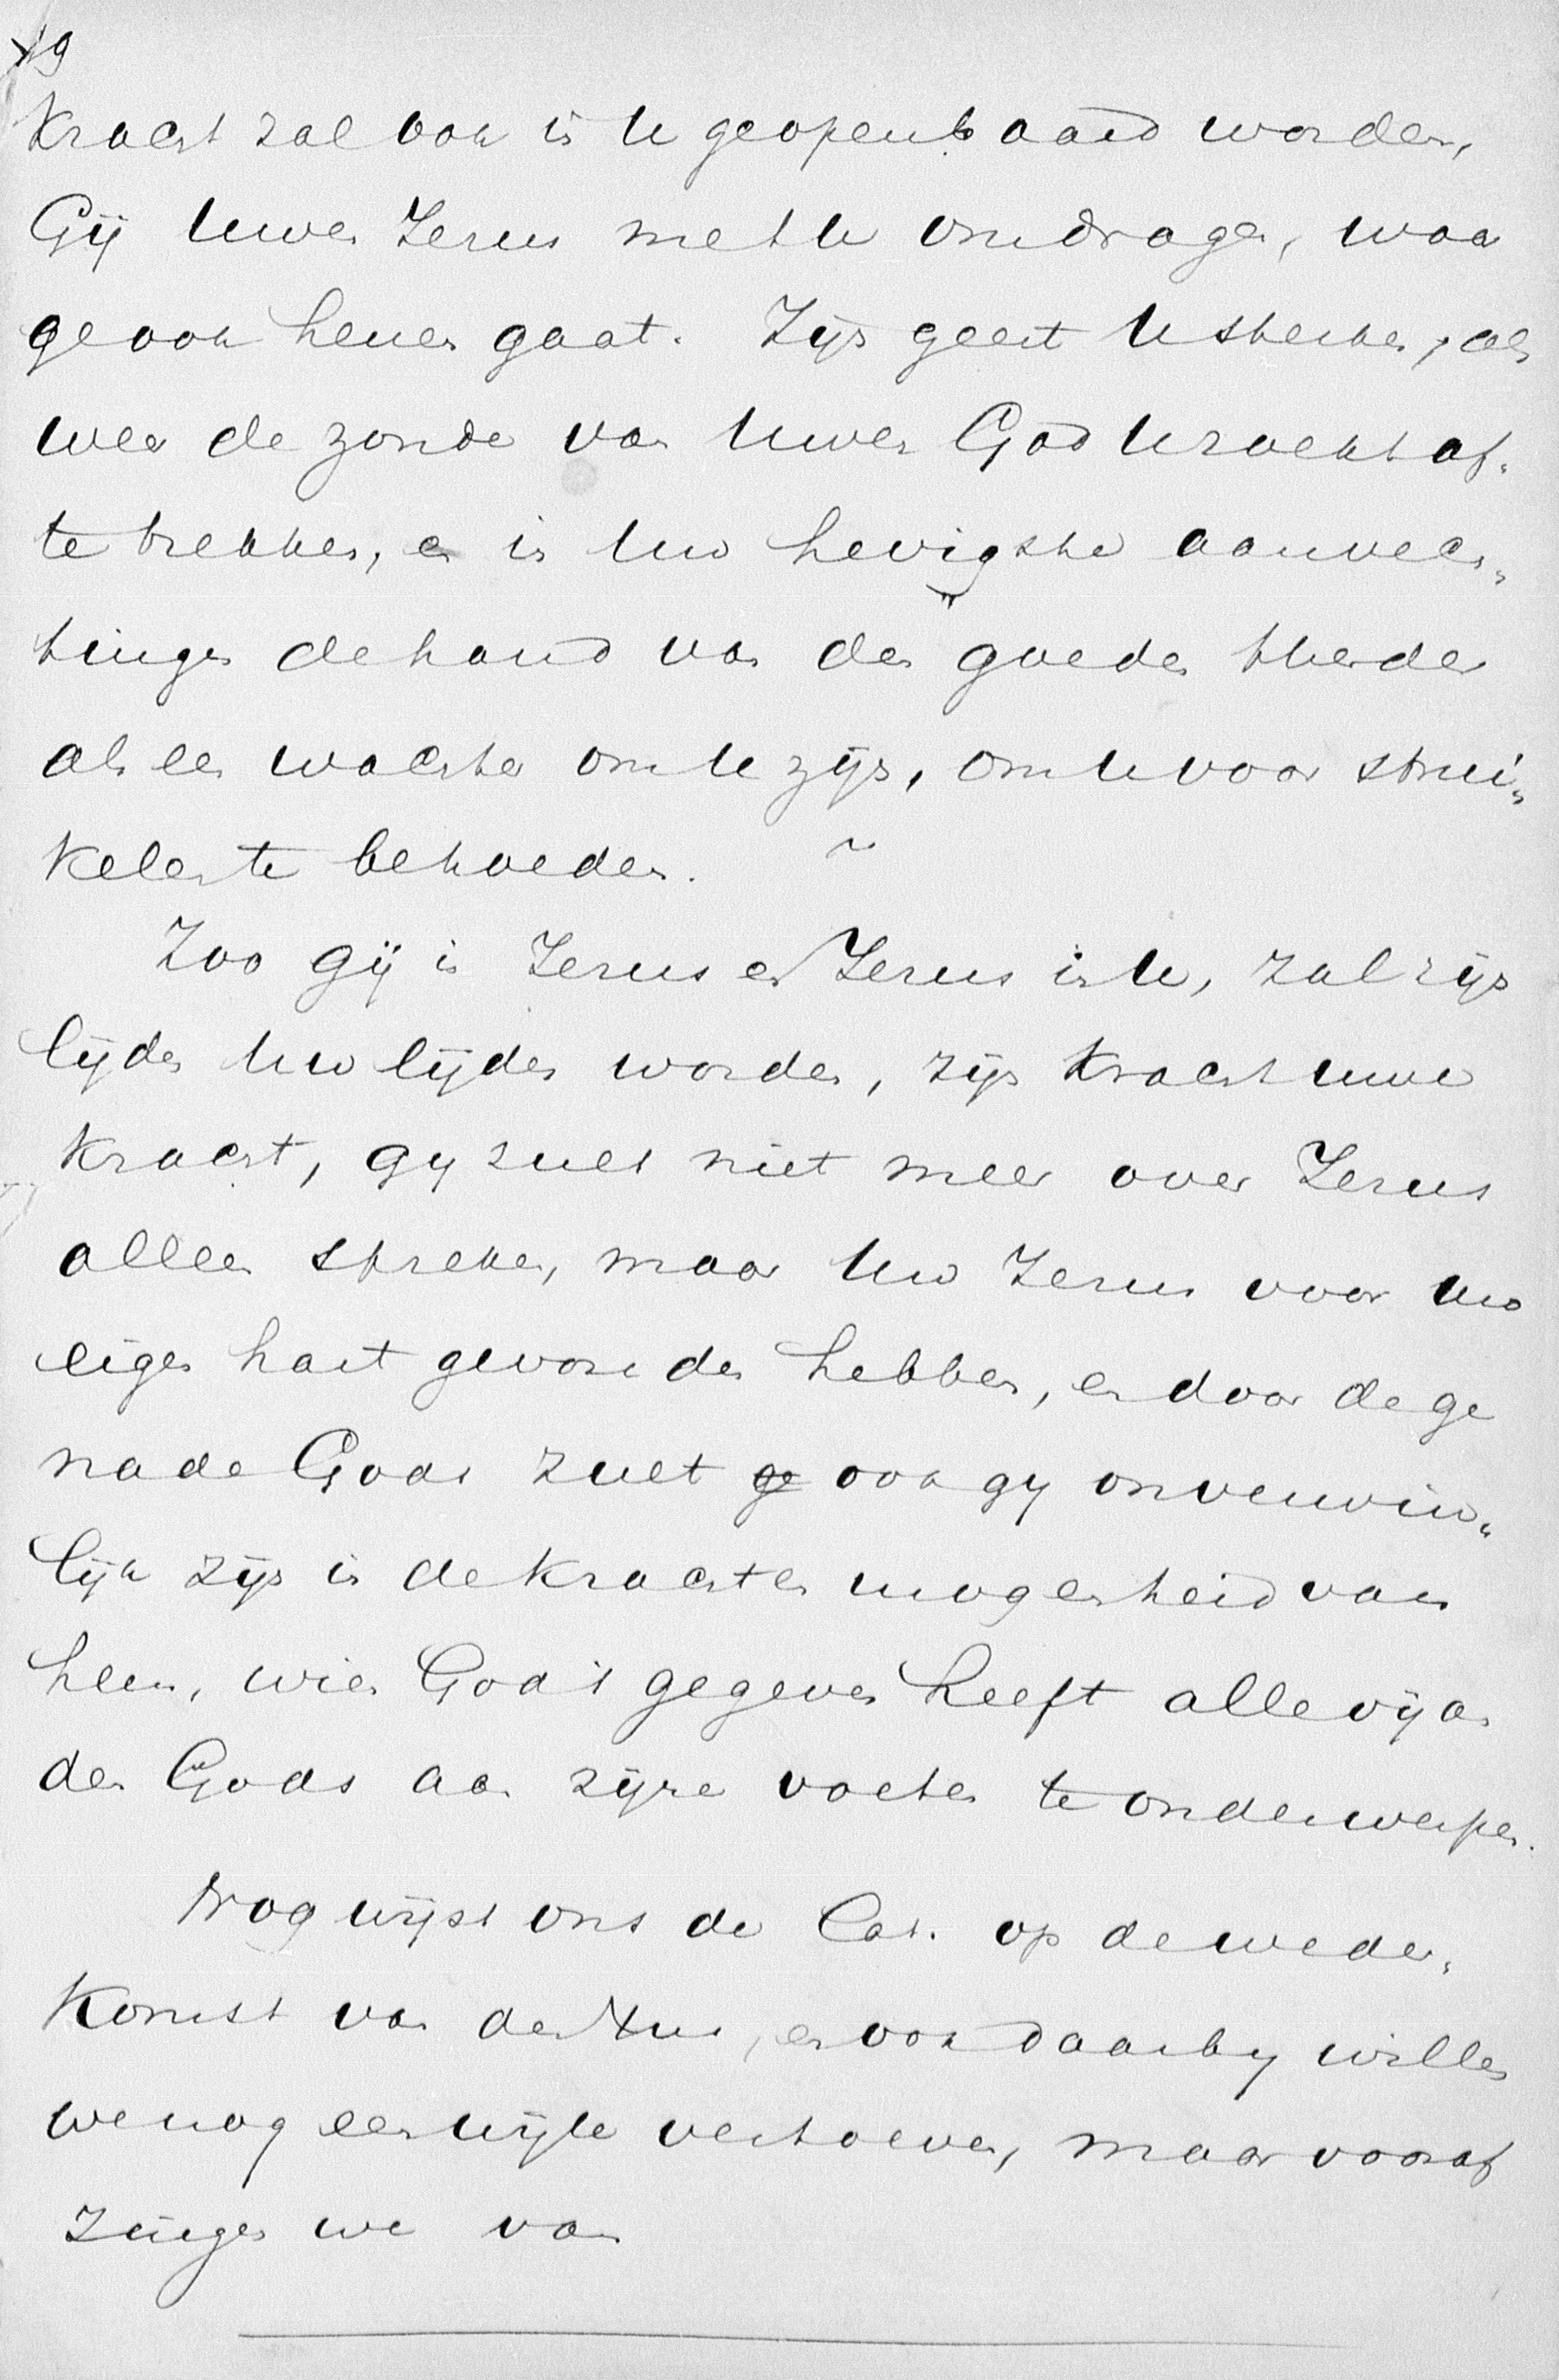 19
Kracht zal ook in U geopenbaard worden,
Gij Uwen Jezus met U omdragen, waar
ge ook henen gaat. Zijn geest U sterken, als
weer de zonde van Uwen God U zoekt af-
te trekken, en in Uw hevigste aanvech-
tingen de hand van den goeden Herder
als een wachter om U zijn, om U voor strui-
kelen te behoeden.
Zoo gij in Jezus en Jezus in U, zal zijn
lijden Uw lijden worden, zijn Kracht uwe
Kracht, gij zult niet meer over Jezus
alleen spreken, maar Uw Jezus voor Uw
eigen hart gevonden hebben, en door de ge
nade Gods zult ook gij onverwin-
lijk zijn in de Kracht en mogenheid van
hem, wien God 't gegeven heeft alle vijan
den Gods aan zijne voeten te onderwerpen.
Nog wijst ons de Cat. op de weder-
Komst van den Xus, en ook daarbij willen
we nog een wijle vertoeven, maar vooraf
zingen we van